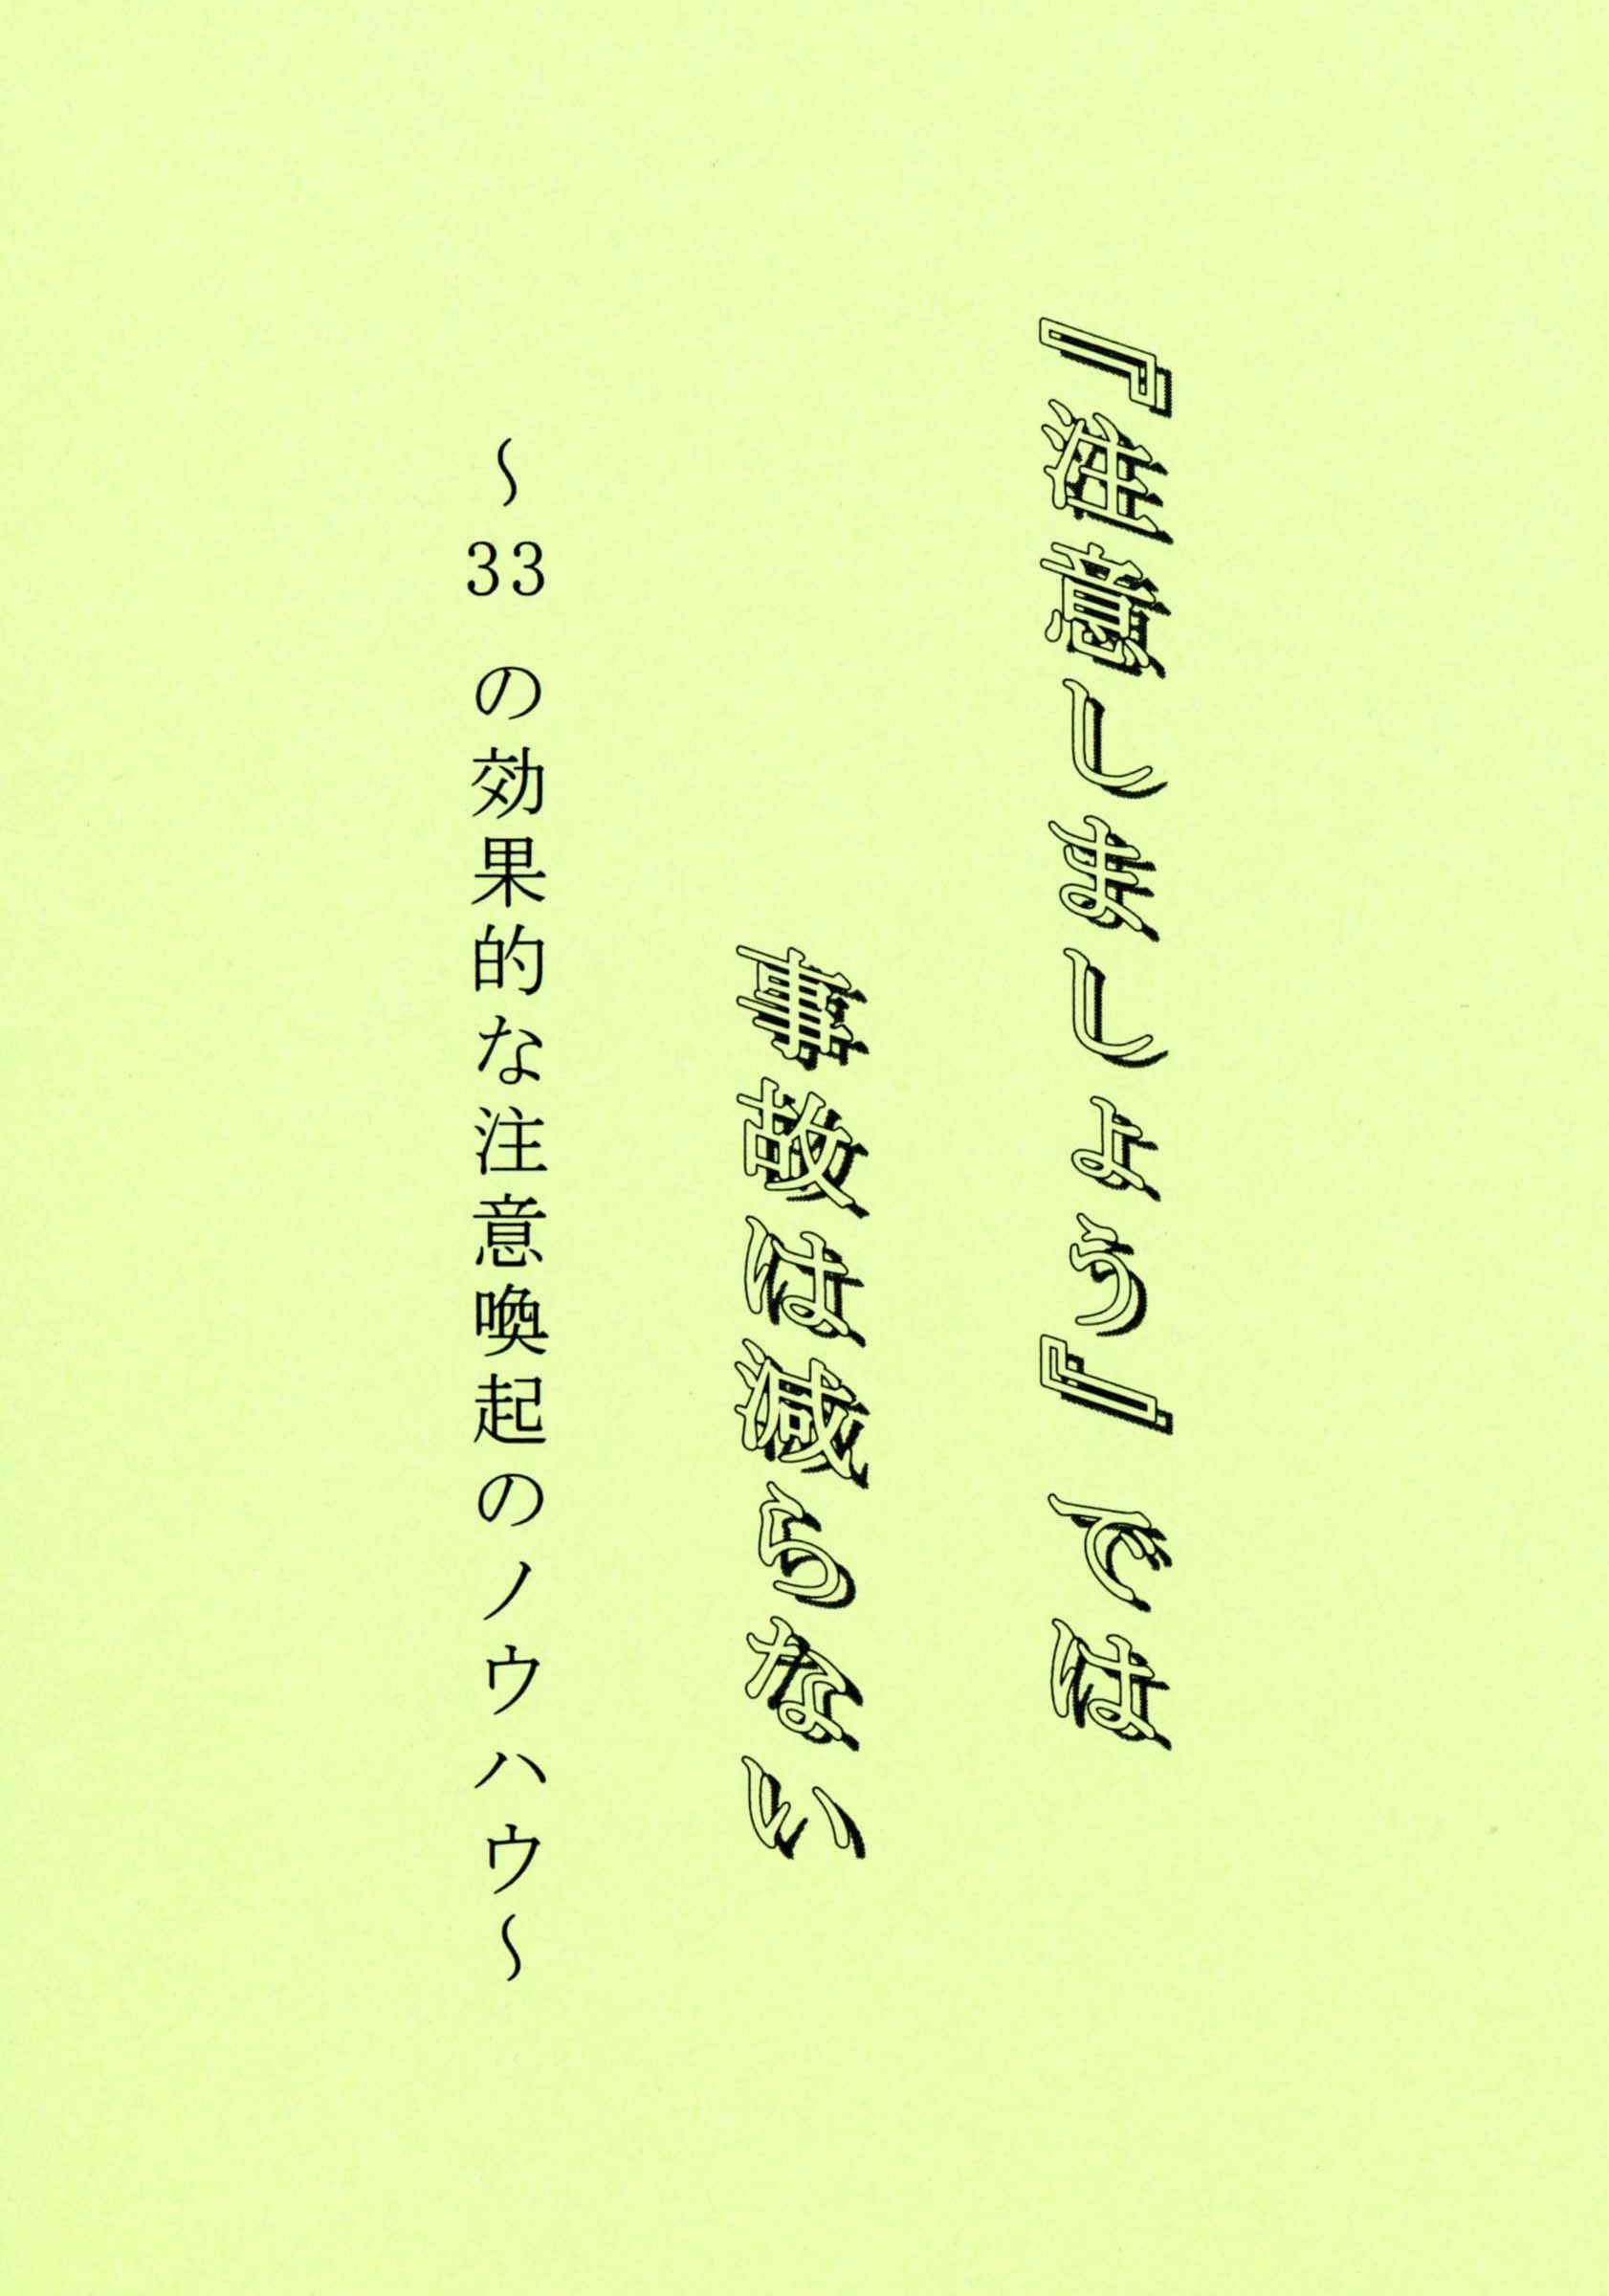 『注意しましょう』では
事故は減らない
～33の効果的な注意喚起のノウハウ～